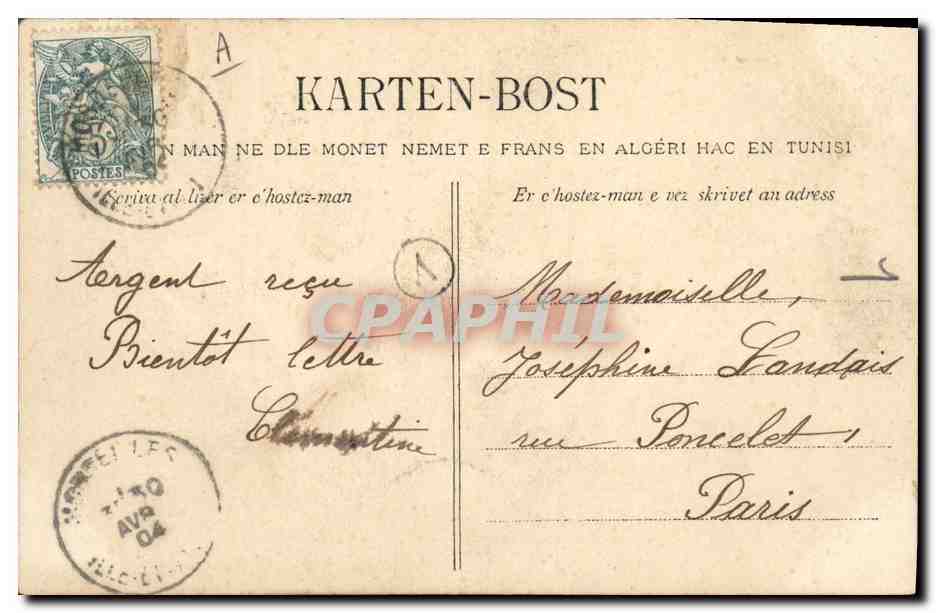 A
5
POSTES
ILLE-ET-
KARTEN-BOST
N MAN NE DLE MONET NEMET E FRANS EN ALGÉRI HAC EN TUNISI
Scriva al lizer er c'hostez-man
Er c'hostez-man e vez skrivet an adress
Argent reçu
Bientôt lettre
Clementine
1
Mademoiselle,
Joséphine Landais
rue Poncelet,
Paris
CPAPHIL
30
AVR
04
ILLE-ET-